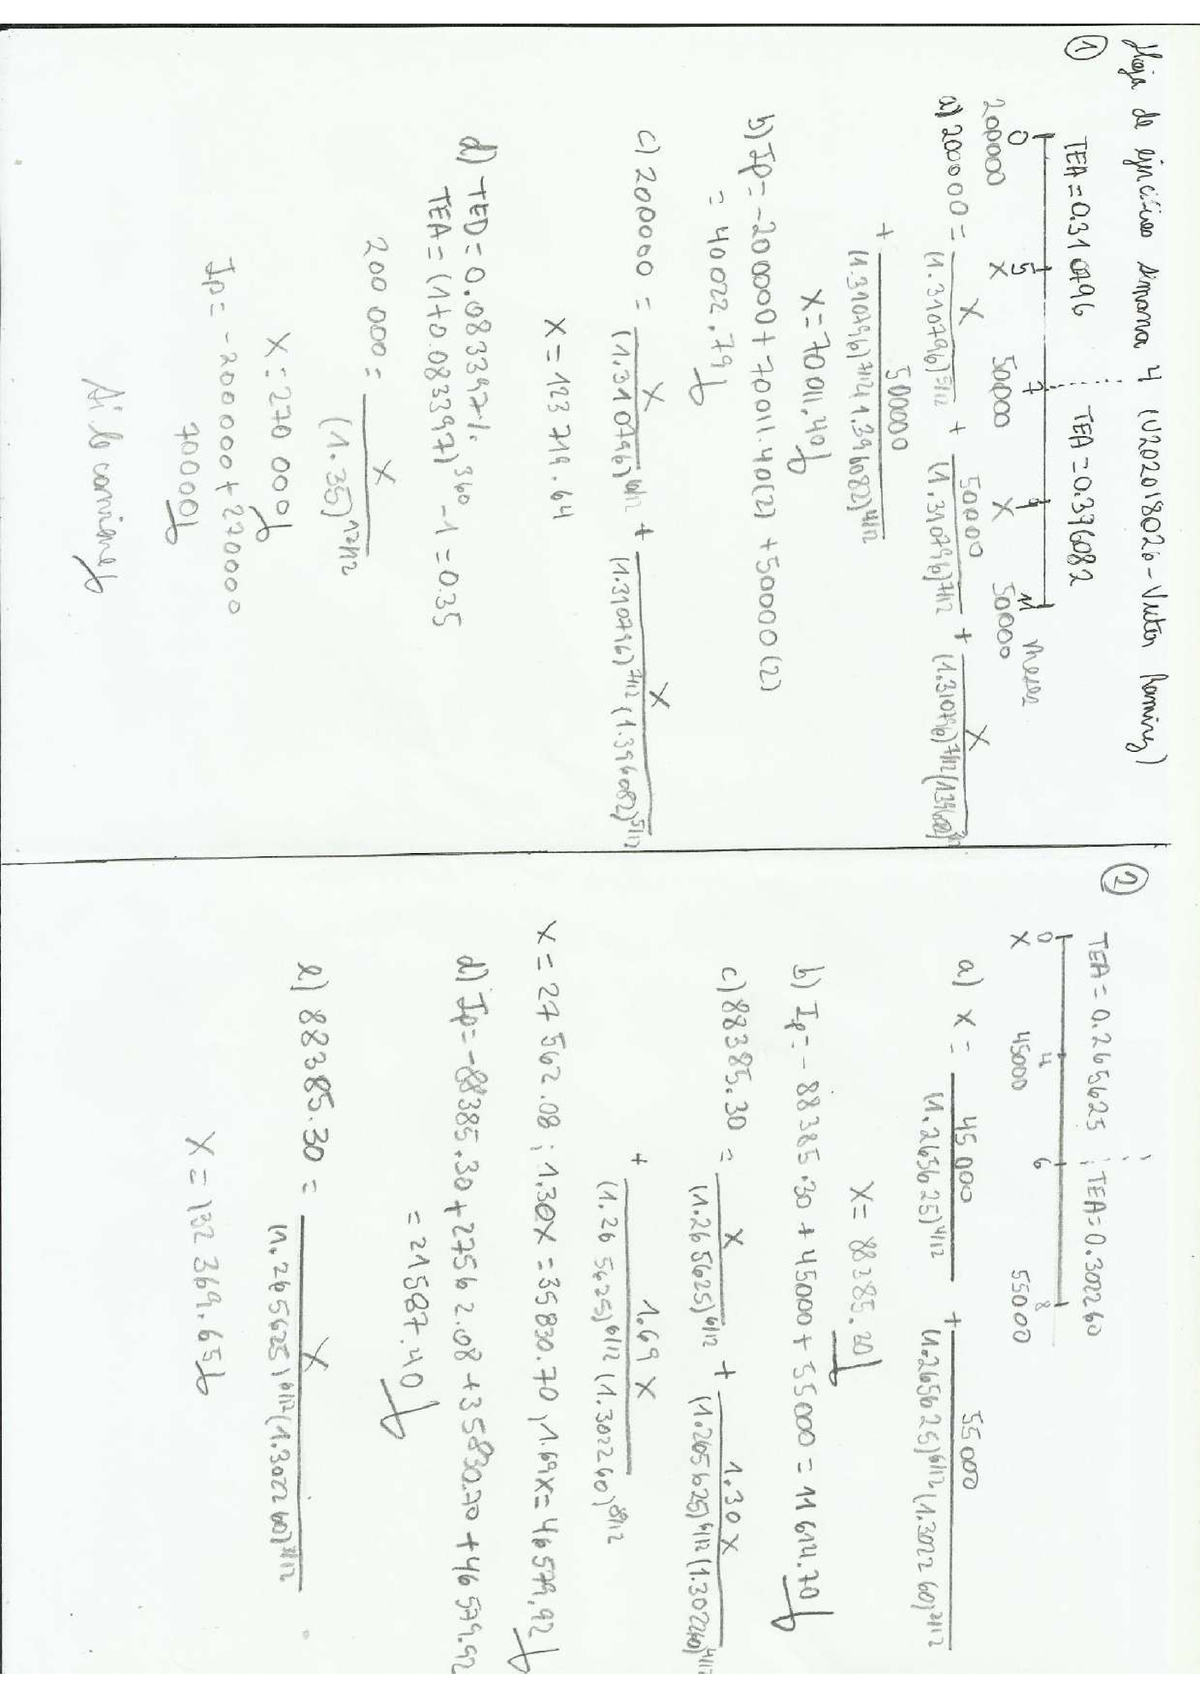 Hoja de ejercicios semana 4 (U202018026-Victor Ramirez)
①
TEA=0.310796 TEA=0.396082
0 5 7 9 11 meses
200000 X 50000 X 50000
a) 200000 = X/(1.310796)^5/12 + 50000/(1.310796)^7/12 + X/(1.310796)^7/12(1.396082)^2/12
+ 50000/(1.310796)^7/12(1.396082)^4/12
X=70011.40
b) Ip=-200000+70011.40(2)+50000(2)
=40022.79
c) 200000 = X/(1.310796)^6/12 + X/(1.310796)^7/12(1.396082)^5/12
X=123719.64
d) TED=0.083397%
TEA=(1+0.083397)^360-1=0.35
200 000= X/(1.35)^12/12
X=270 000
Ip=-200000+270000
70000
Si le conviene
②
TEA=0.265625 TEA=0.302260
0 4 6 8
X 45000 55000
a) X= 45000/(1.265625)^4/12 + 55000/(1.265625)^6/12(1.302260)^2/12
X=88385.30
b) Ip=-88385.30+45000+55000=11614.70
c) 88385.30= X/(1.265625)^6/12 + 1.30X/(1.265625)^6/12(1.302260)^4/12
+ 1.69X/(1.265625)^6/12(1.302260)^8/12
X=27562.08; 1.30X=35830.70, 1.69X=46579,92
d) Ip=-88385.30+27562.08+35830.70+46579.92
=21587.40
e) 88385.30= X/(1.265625)^6/12(1.302260)
X=132369.65